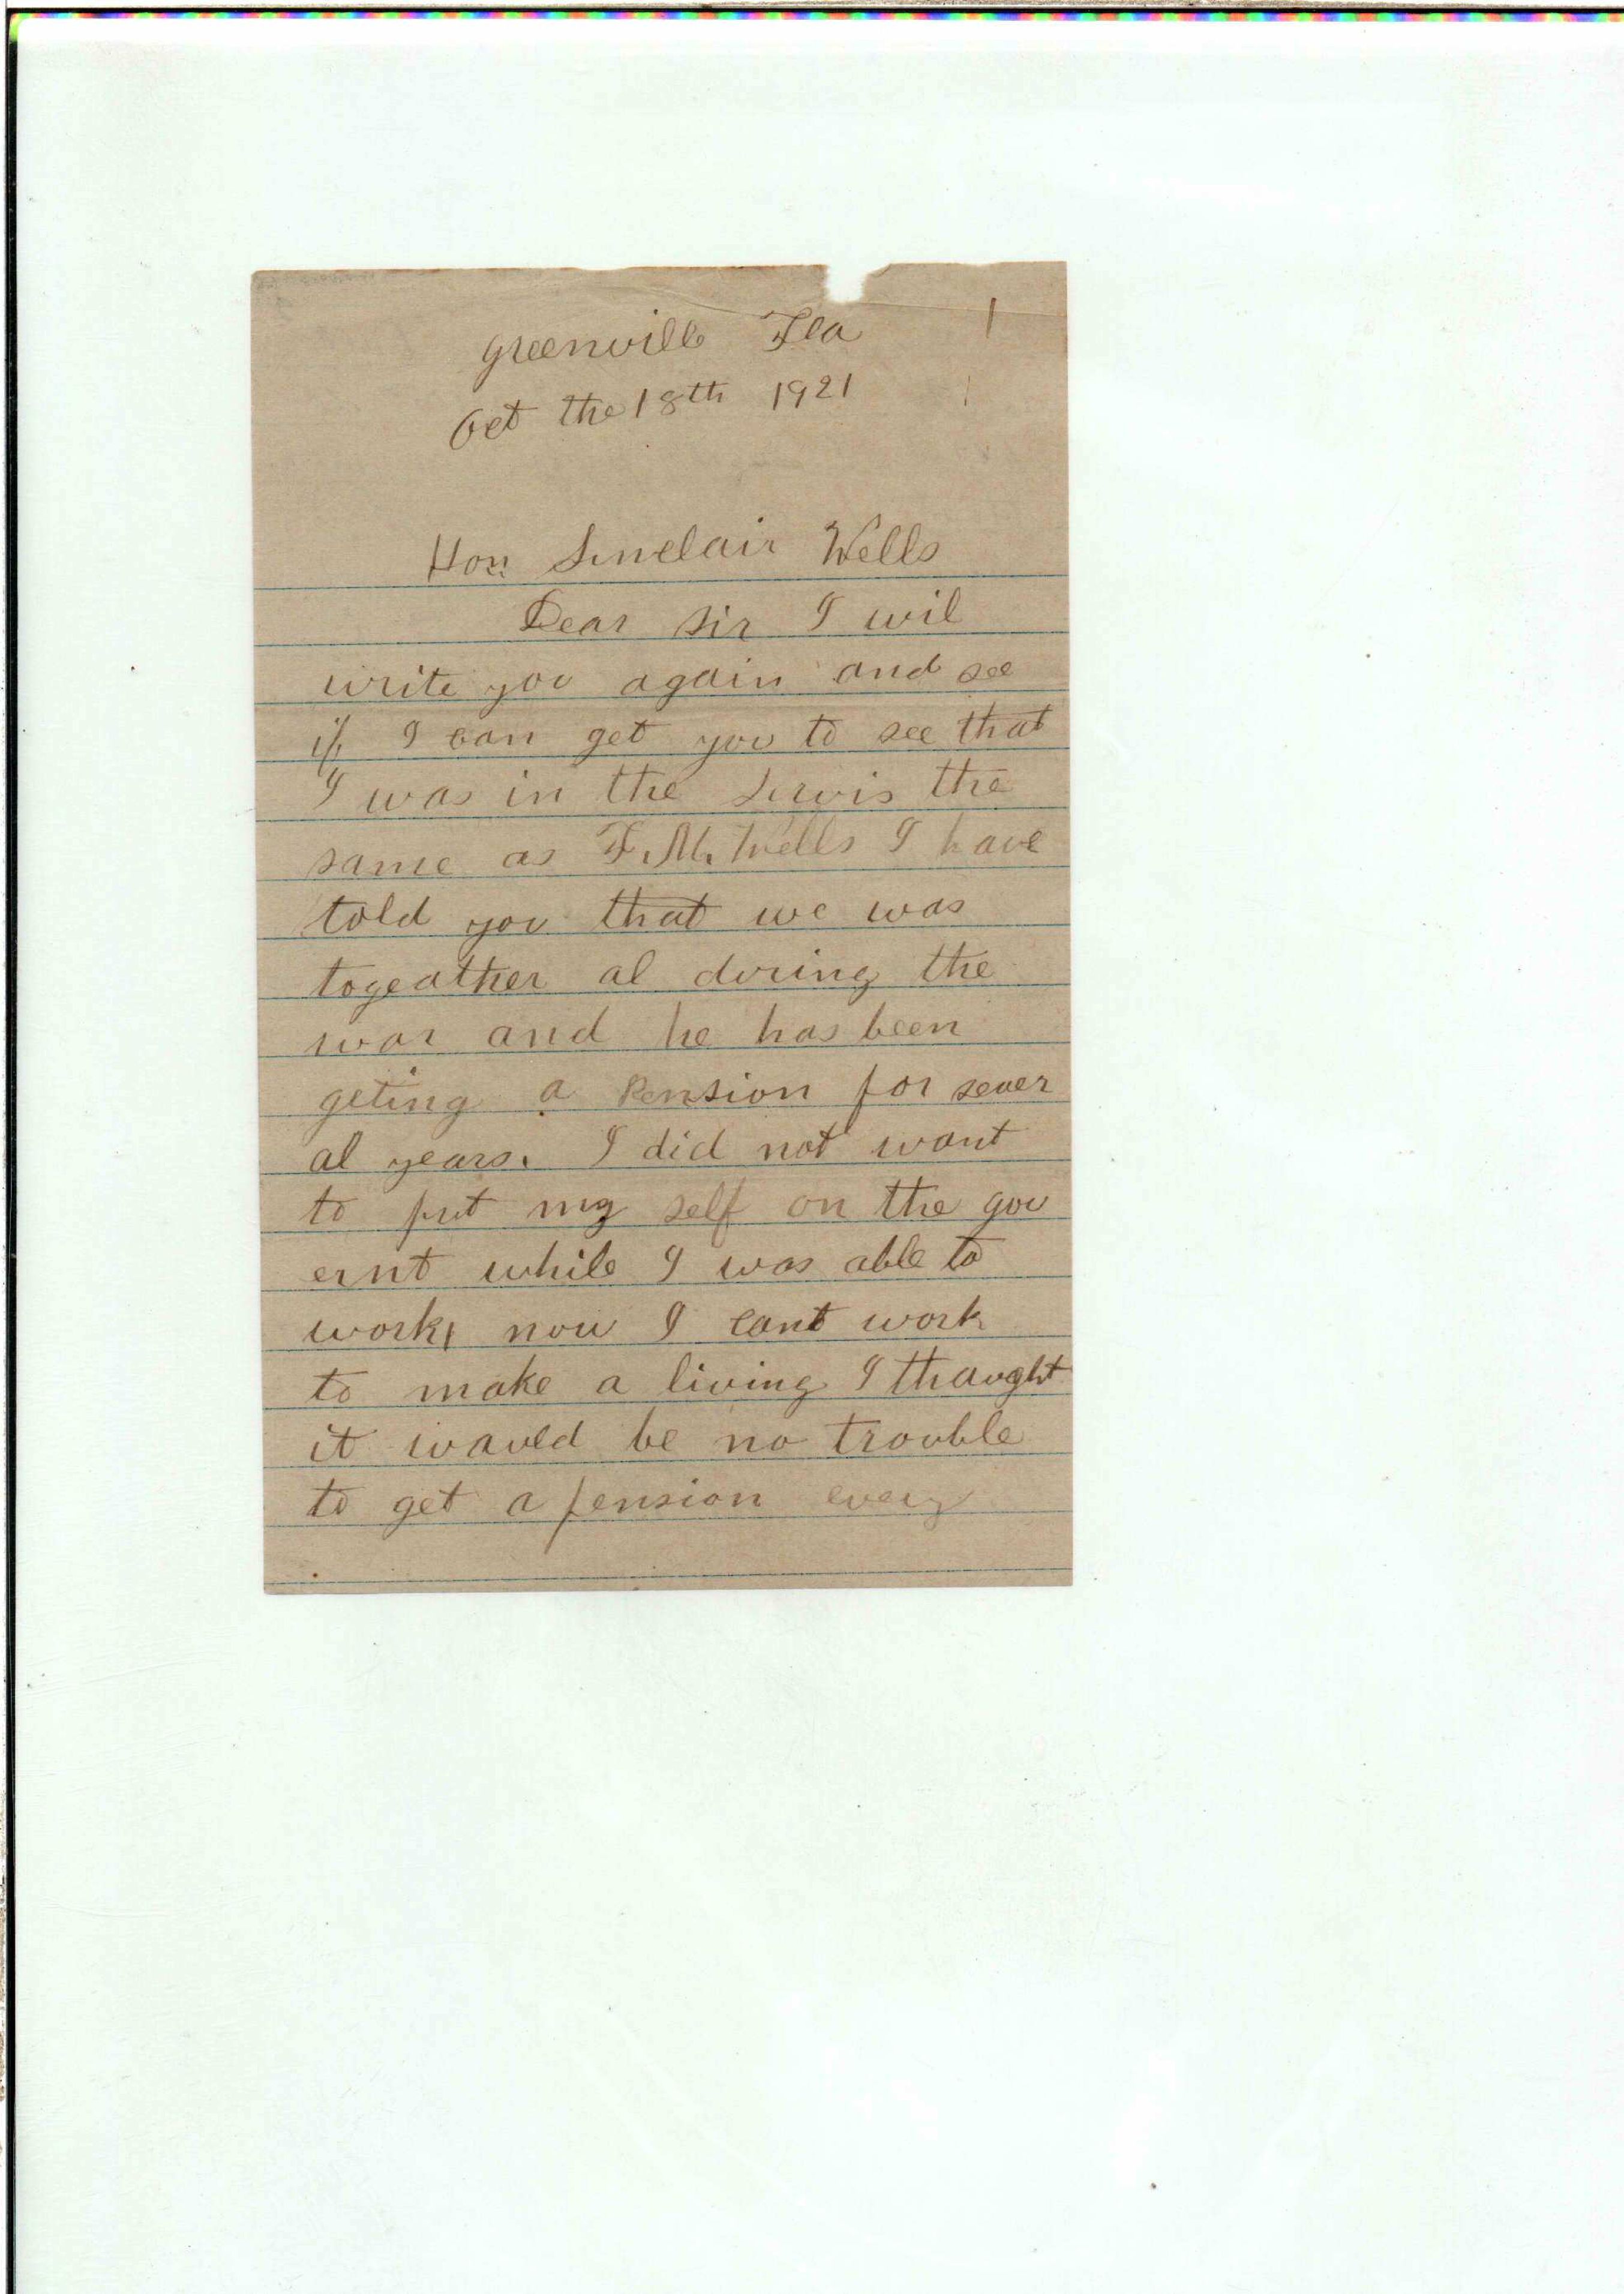 1
Greenville Fla
Oct the 18th 1921
Hon Sinclair Wells
Dear Sir I wil
write you again and see
if I can get you to see that
I was in the servis the
same as F. M. Wells I have
told you that we was
togeather al during the
war and he has been
geting a Pension for sever
al years. I did not want
to put my self on the gov
ernt while I was able to
work, now I cant work
to make a living I thaught
it wauld be no trouble
to get a pension every